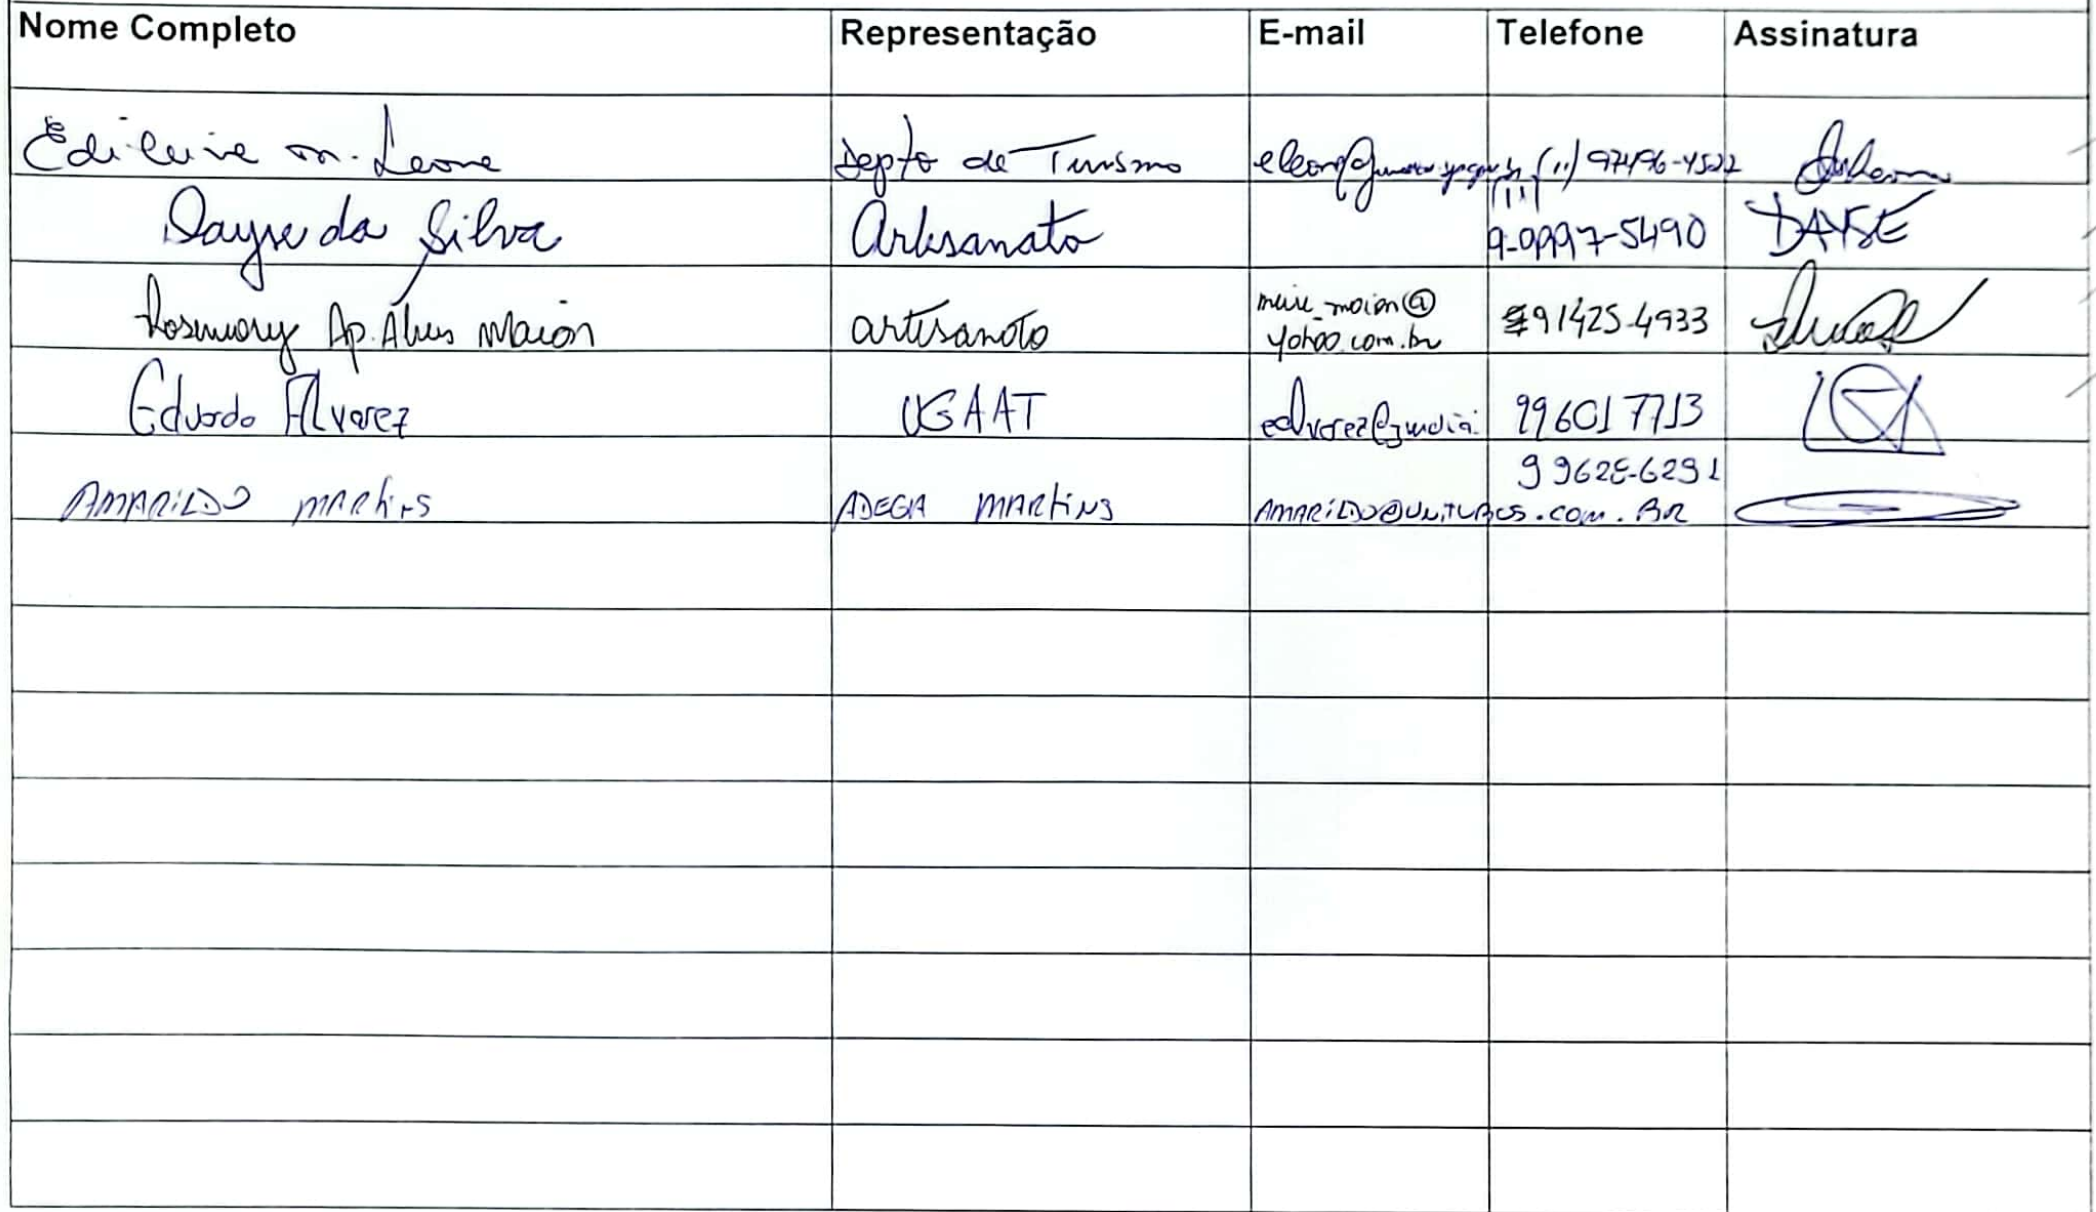 Nome Completo Representação E-mail Telefone Assinatura
Edileine m. Leone Depto de Turismo (11) 97496-4522
(11)
Dayse da Silva Artesanato 9-9997-5490 DAYSE
meire_maion@
Rosemary Ap. Alves Maion artesanato yahoo.com.br 91425-4933
Eduardo Alvarez UGAAT ealvarez@jundiai. 996017713
9 9628-6291
AMARILDO MARtiNS ADEGA MARtiNS AMARiLDO@UNITUBOS.COM.BR